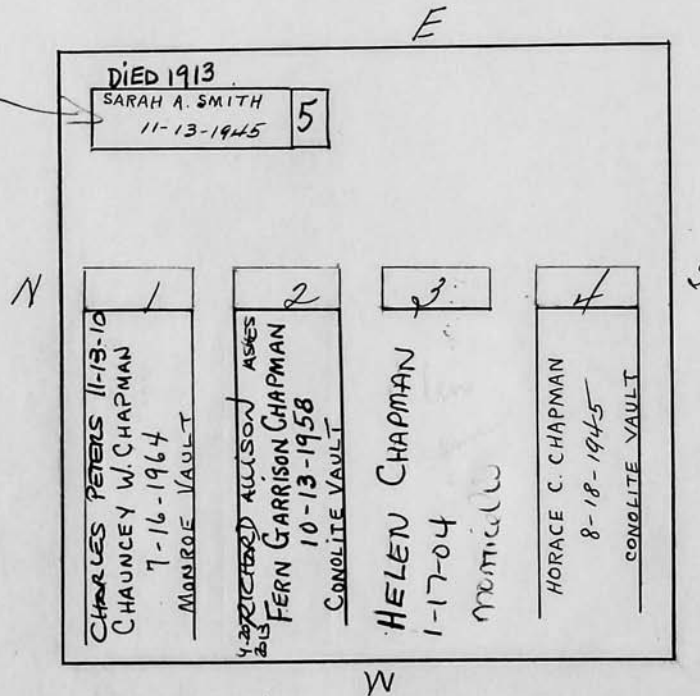 E
DiED 1913
SARAH A. SMITH
11-13-1945
5
N
1
CHARLES PETERS 11-13-10
CHAUNCEY W. CHAPMAN
7-16-1964
MONROE VAULT
2
4-20
2013
RICHARD ALLISON ASHES
FERN GARRISON CHAPMAN
10-13-1958
CONOLITE VAULT
3
HELEN CHAPMAN
1-17-04
monticello
4
HORACE C. CHAPMAN
8-18-1945
CONOLITE VAULT
S
W